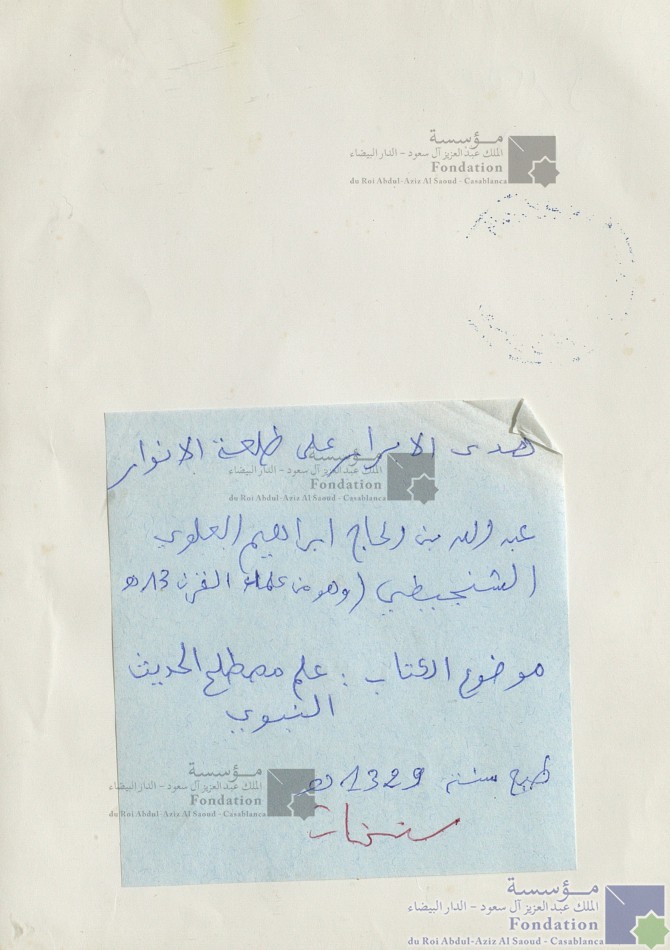 مؤسسة
الملك عبد العزيز آل سعود - الدار البيضاء
Fondation
du Roi Abdul-Aziz Al Saoud - Casablanca
هدى الابرار على طلعة الانوار
مؤسسة
الملك عبد العزيز آل سعود - الدار البيضاء
Fondation
du Roi Abdul-Aziz Al Saoud - Casablanca
عبد الله بن الحاج ابراهيم العلوي
الشنجيطي (وهو من علماء القرن 13 ه
موضوع الكتاب : علم مصطلح الحديث
النبوي
طبع سنة 1329 ه
مؤسسة
الملك عبد العزيز آل سعود - الدار البيضاء
Fondation
du Roi Abdul-Aziz Al Saoud - Casablanca
مؤسسة
الملك عبد العزيز آل سعود - الدار البيضاء
Fondation
du Roi Abdul-Aziz Al Saoud - Casablanca